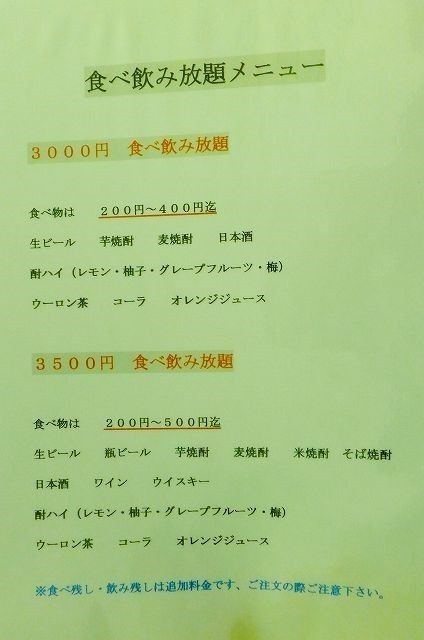 食べ飲み放題メニュー
３０００円　食べ飲み放題
食べ物は　２００円～４００円迄
生ビール　芋焼酎　麦焼酎　日本酒
酎ハイ（レモン・柚子・グレープフルーツ・梅）
ウーロン茶　コーラ　オレンジジュース
３５００円　食べ飲み放題
食べ物は　２００円～５００円迄
生ビール　瓶ビール　芋焼酎　麦焼酎　米焼酎　そば焼酎
日本酒　ワイン　ウイスキー
酎ハイ（レモン・柚子・グレープフルーツ・梅）
ウーロン茶　コーラ　オレンジジュース
※食べ残し・飲み残しは追加料金です、ご注文の際ご注意下さい。